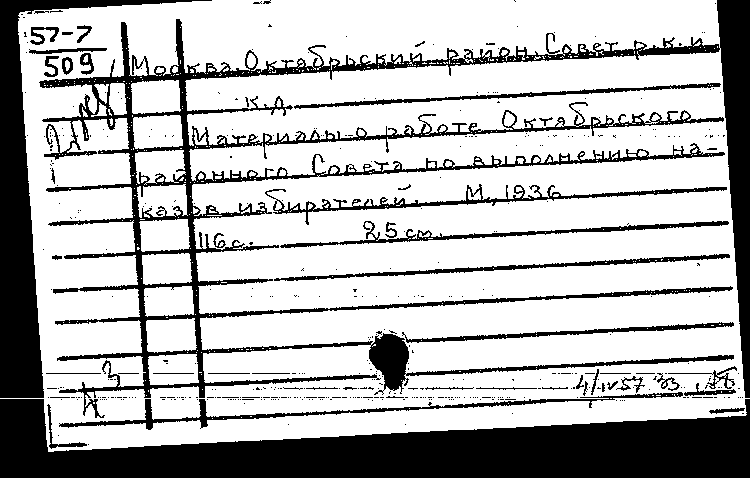 57-7
509
Москва. Октябрьский район. Совет р.к. и
к.д.
Материалы о работе Октябрьского
районного Совета по выполнению на-
казов избирателей. М., 1936
116 с. 25 см.
3
4/IV 57